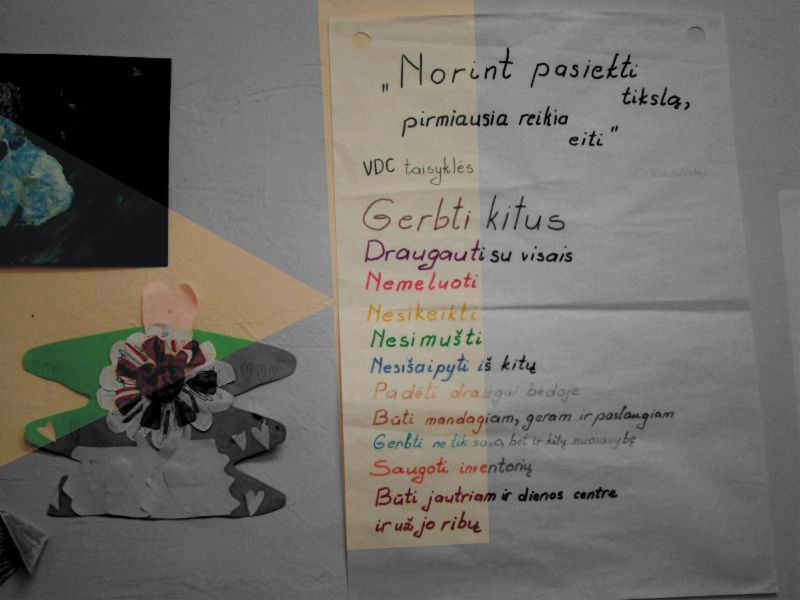 „Norint pasiekti
tikslą,
pirmiausia reikia
eiti"
VDC taisyklės
Gerbti kitus
Draugauti su visais
Nemeluoti
Nesikeikti
Nesimušti
Nesišaipyti iš kitų
Padėti draugui bėdoje
Būti mandagiam, geram ir paslaugiam
Gerbti ne tik savo, bet ir kitų nuosavybę
Saugoti inventorių
Būti jautriam ir dienos centre
ir už jo ribų